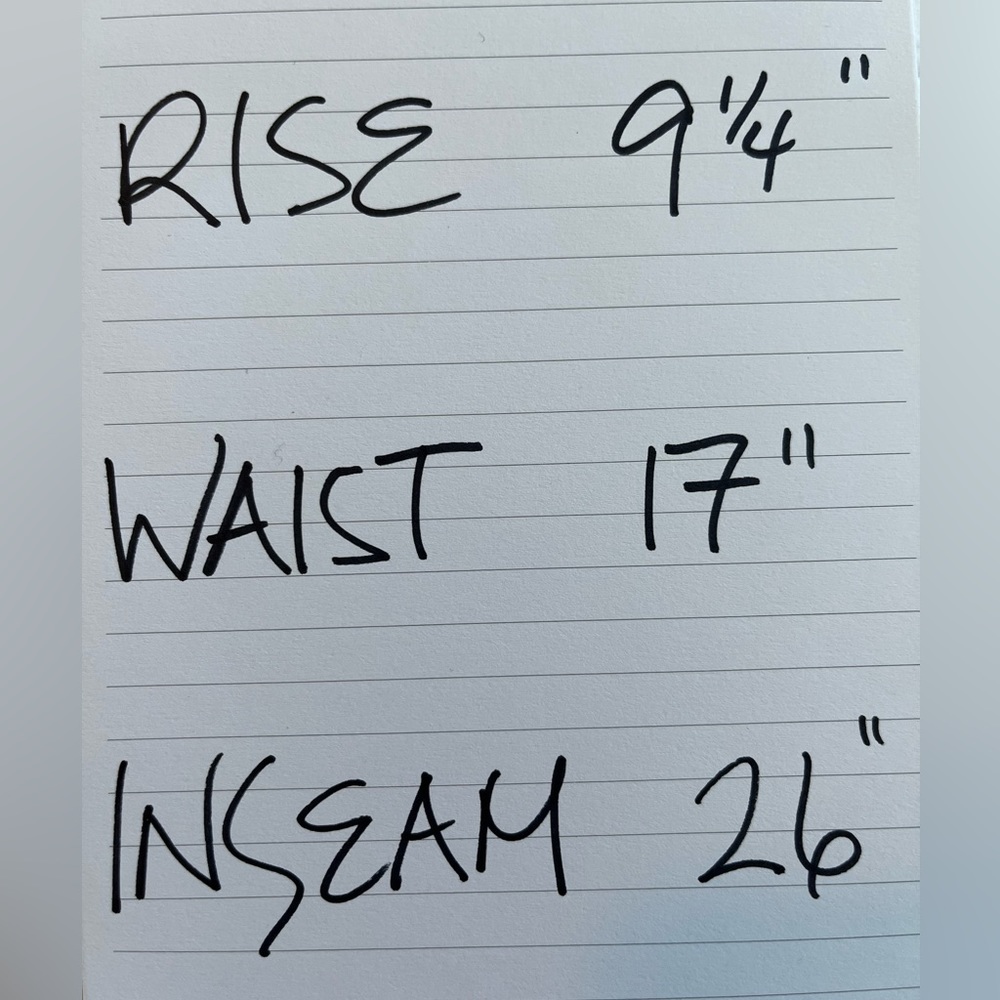 RISE 9 1/4"
WAIST 17"
INSEAM 26"